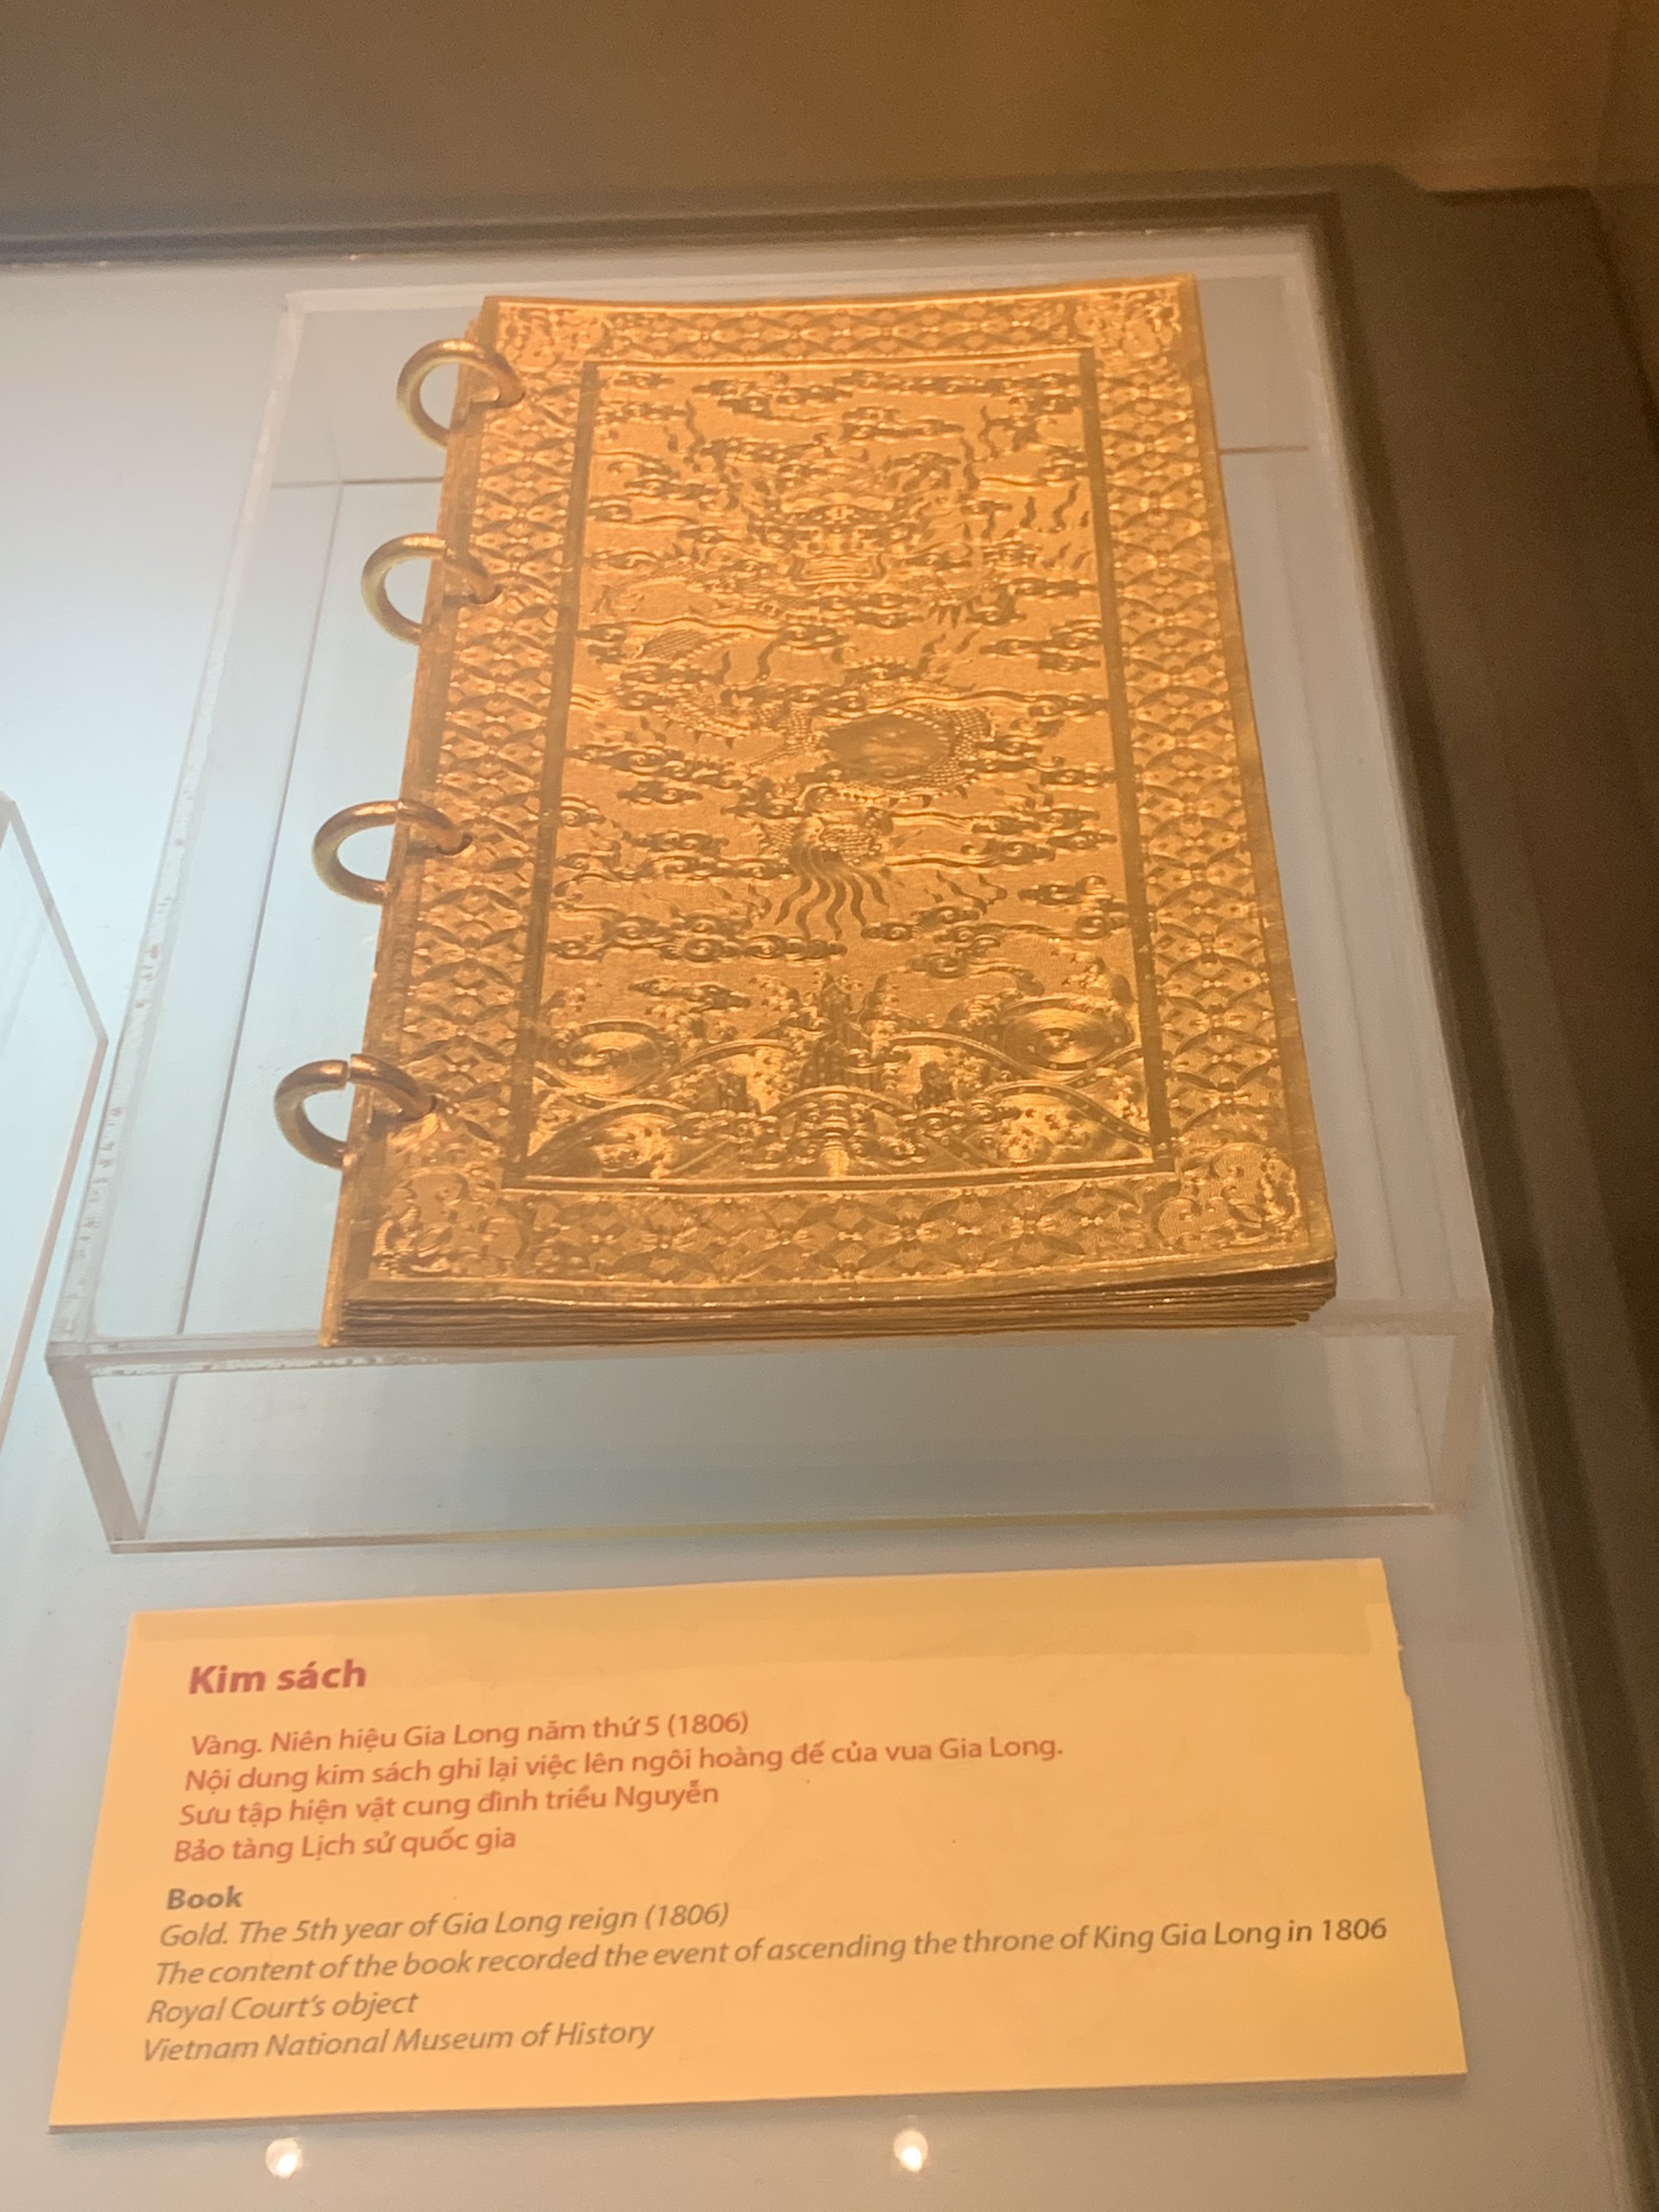 Kim sách
Vàng. Niên hiệu Gia Long năm thứ 5 (1806)
Nội dung kim sách ghi lại việc lên ngôi hoàng đế của vua Gia Long.
Sưu tập hiện vật cung đình triều Nguyễn
Bảo tàng Lịch sử quốc gia
Book
Gold. The 5th year of Gia Long reign (1806)
The content of the book recorded the event of ascending the throne of King Gia Long in 1806
Royal Court's object
Vietnam National Museum of History